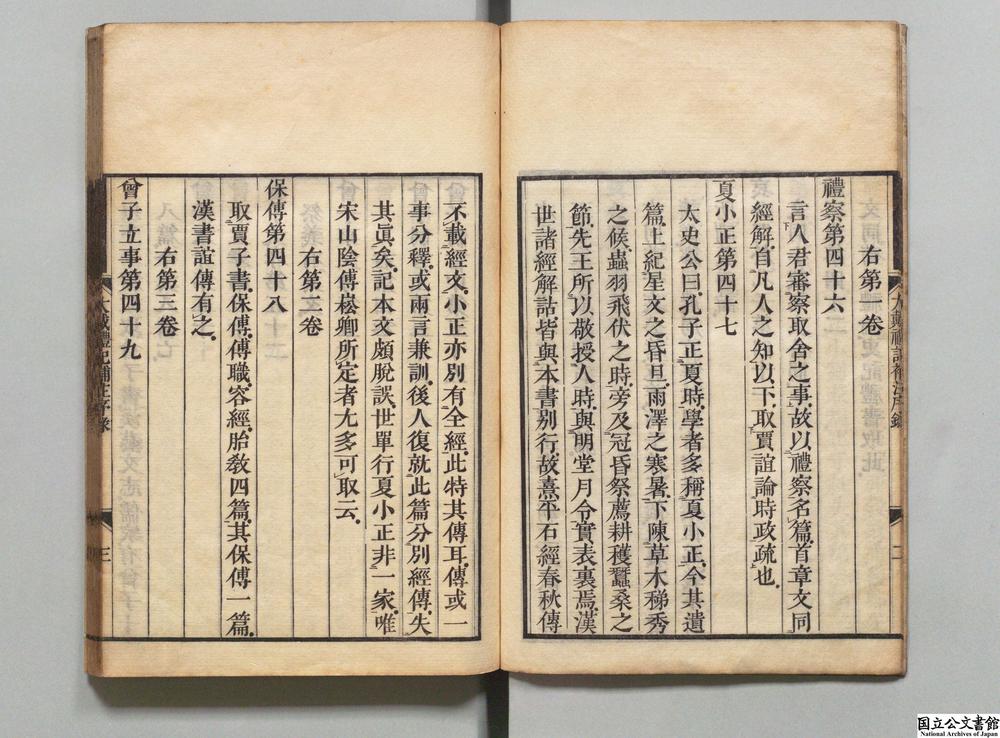 右第一卷
禮察第四十六
言人君審察取舍之事故以禮察名篇首章文同
經解自凡人之知以下取賈誼論時政疏也
夏小正第四十七
太史公曰孔子正夏時學者多稱夏小正今其遺
篇上紀星文之昏旦雨澤之寒暑下陳草木稊秀
之候蟲羽飛伏之時旁及冠昏祭薦耕穫蠶桑之
節先王所以敬授人時與明堂月令實表裏焉漢
世諸經解詁皆與本書别行故熹平石經春秋傳
不載經文小正亦別有全經此特其傳耳傳或一
事分釋或兩言兼訓後人復就此篇分別經傳失
其眞矣記本文頗脫誤世單行夏小正非一家唯
宋山陰傅崧卿所定者尤多可取云
右第二卷
保傅第四十八
取賈子書保傅傅職容經胎敎四篇其保傅一篇
漢書誼傳有之
右第三卷
曾子立事第四十九
大戴禮記補注序錄
二
大戴禮記補注序錄
三
国立公文書館
National Archives of Japan